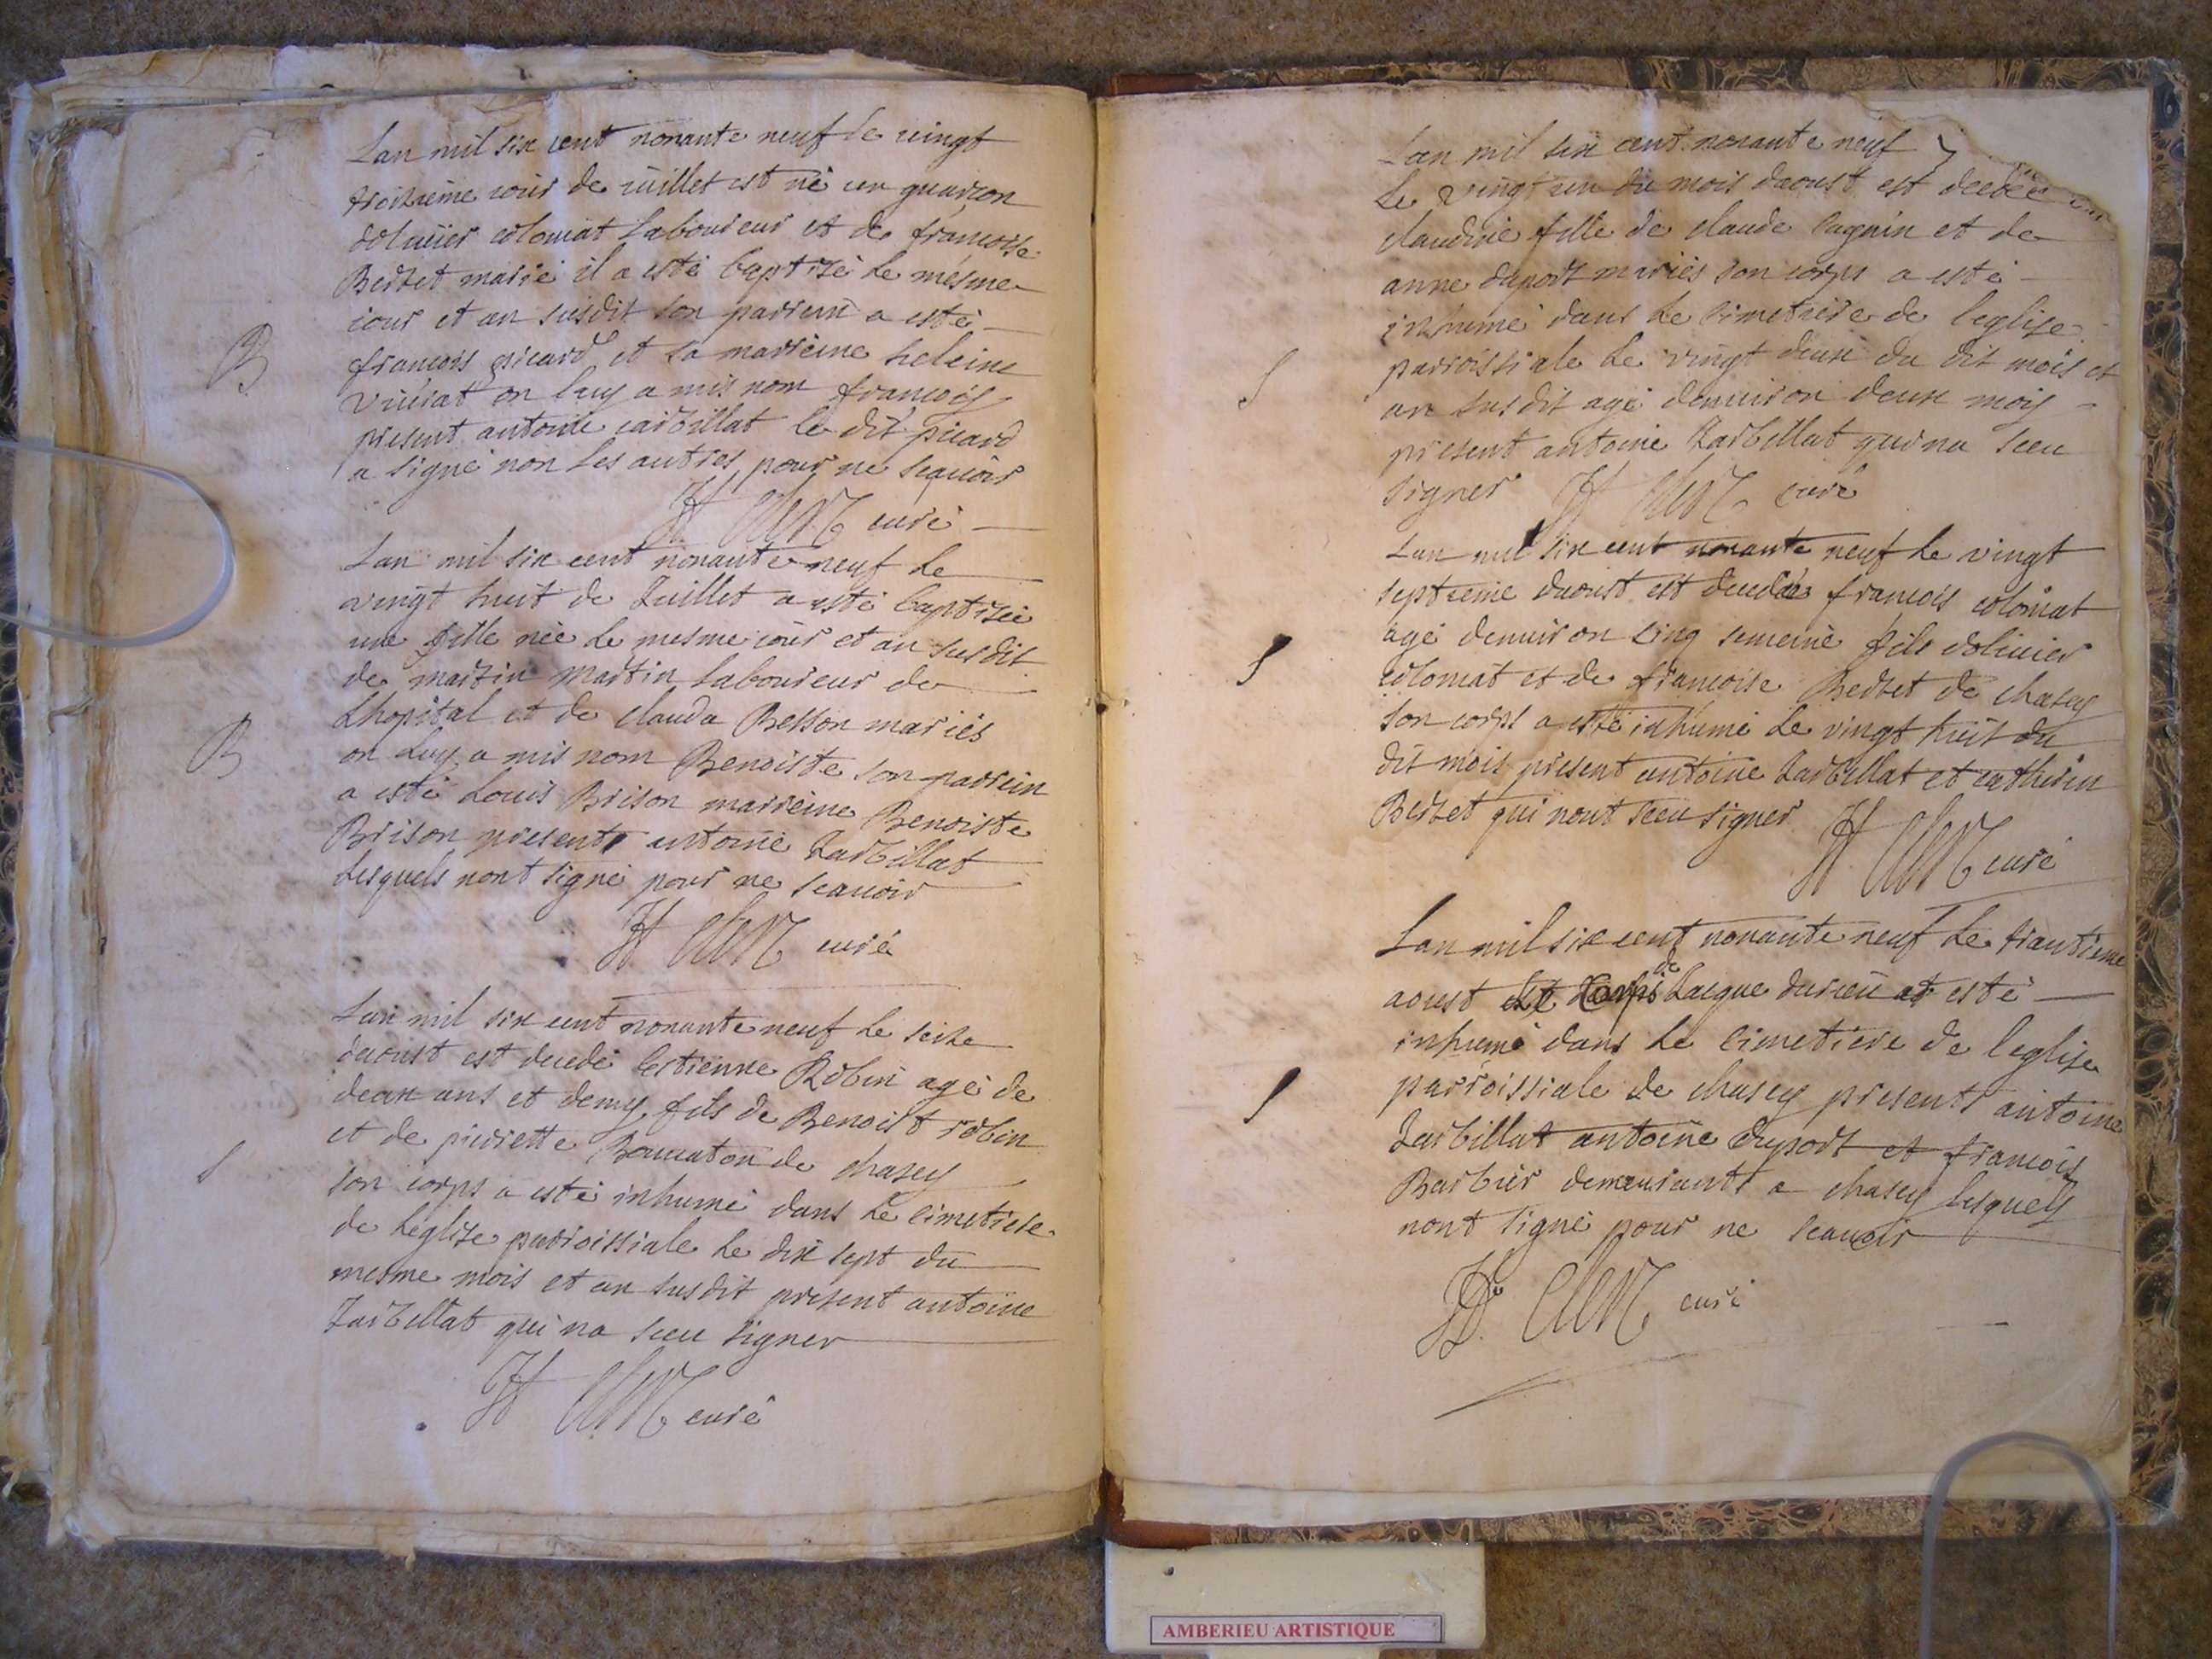 B
Lan mil six cent nonante neuf le vingt
troisieme iour de iuillet est né un guarson
dolivier colomat Laboureur et de francoise
Bertet marié il a esté baptizé le mesme
iour et an susdit son parrein a esté
francois picard et sa marreine heleine
on luy a mis nom francois
present antoine iarbillat le dit picard
a signé non les autres pour ne scavoir
curé
B
Lan mil six cent nonante neuf le
vingt huit de Juillet a esté baptizée
une fille née le mesme iour et an susdit
de martin martin laboureur de
Lhopital et de clauda Besson mariés
on luy a mis nom Benoiste son parrein
a esté Louis Brison marreine Benoiste
Brison presents antoine Jarbillat
lesquels nont signé pour ne scauoir
curé
S
Lan mil six cent nonante neuf le seize
daoust est decedé estienne Robin agé de
deux ans et demy fils de Benoist robin
et de pierrette de chasey
son corps a esté inhumé dans le cimetiere
de leglize parroissiale le dix sept du
mesme mois et an susdit present antoine
Jarbillat qui na sceu signer
curé
Lan mil six cent nonante neuf
le vingt un du mois daoust est decedée
claudine fille de claude cagnin et de
anne duport mariés son corps a esté
inhumé dans le cimetiere de leglise
S
parroissiale le vingt deux du dit mois et
an susdit agé denuiron deux mois
present antoine Jarbillat qui na sceu
signer curé
Lan mil six cent nonante neuf le vingt
septieme daoust est decedé francois colomat
agé denuiron cinq semeine fils dolivier
S
colomat et de francoise Bertet de chasey
son corps a esté inhumé le vingt huit du
dit mois present antoine Jarbillat et catherin
Bertet qui nont sceu signer
curé
Lan mil six cent nonante neuf le trantieme
aoust le corps de Jacque durieu at esté
inhumé dans le cimetiere de leglise
S
parroissiale de chasey presents antoine
Jarbillat antoine duport et francois
Barbier demeurants a chasey lesquels
nont signé pour ne scauoir
curé
AMBERIEU ARTISTIQUE